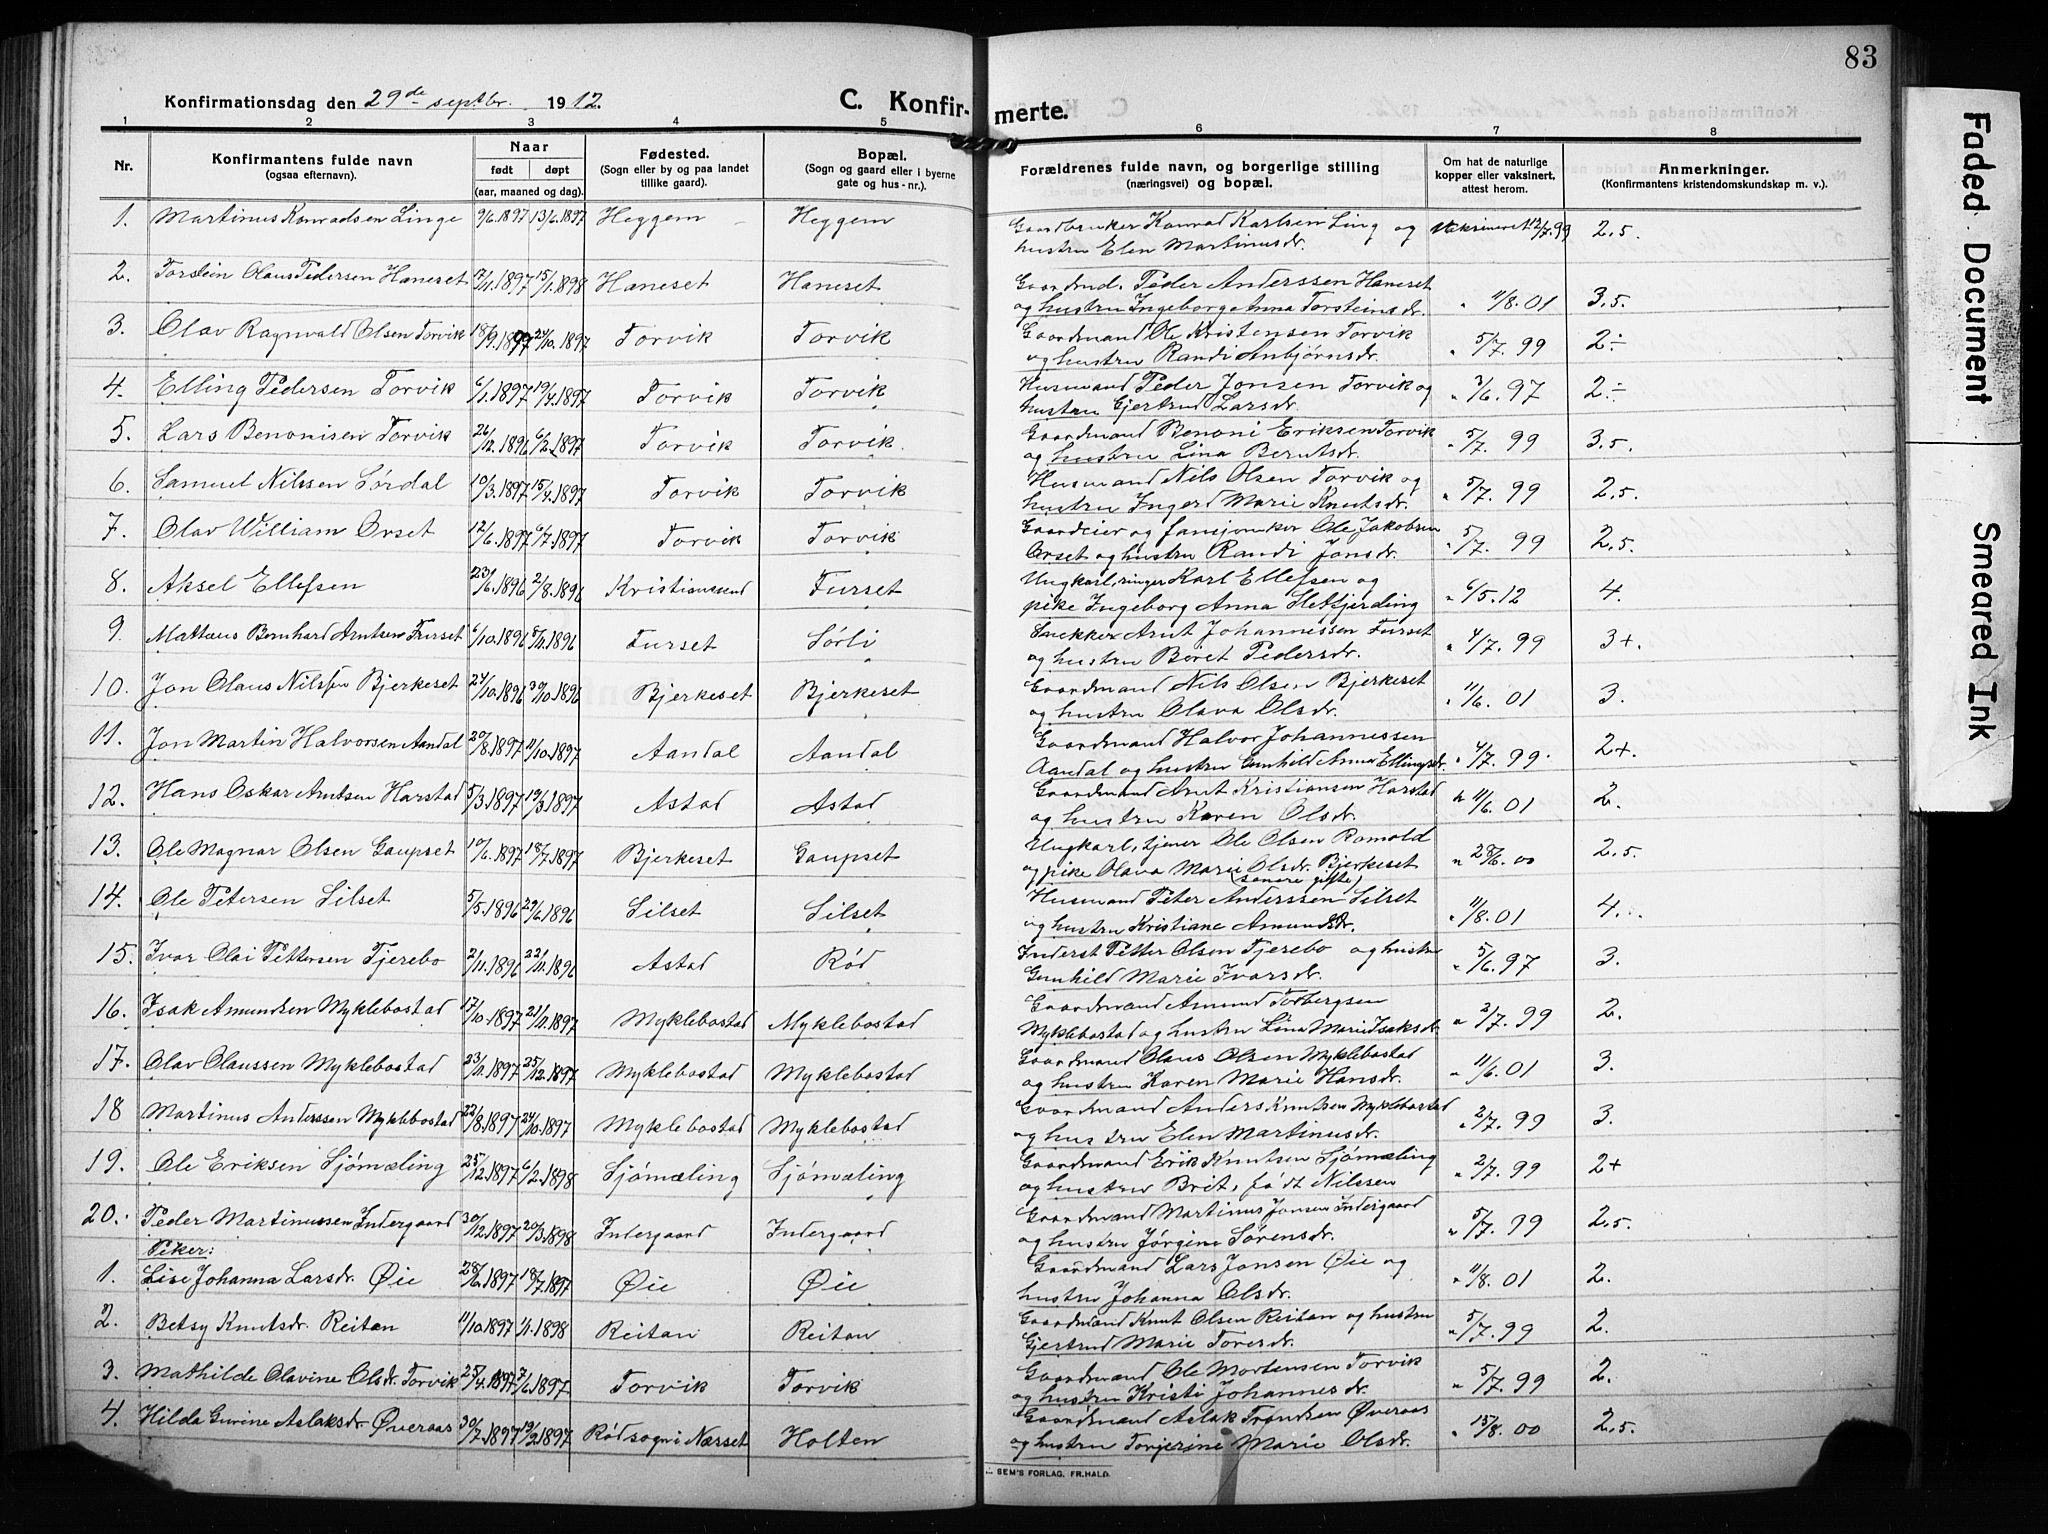 83
Konfirmationsdag den 29de septbr. 1912.
C. Konfirmerte.
1 2 3 4 5 6 7 8
Nr. Konfirmantens fulde navn (ogsaa efternavn). Naar født døpt (aar, maaned og dag). Fødested. (Sogn eller by og paa landet tillike gaard). Bopæl. (Sogn og gaard eller i byerne gate og hus-nr.). Forældrenes fulde navn, og borgerlige stilling (næringsvei) og bopæl. Om hat de naturlige kopper eller vaksinert, attest herom. Anmerkninger. (Konfirmantens kristendomskundskap m. v.).
1. Martinus Konradsen Linge 9/6.1897 13/6.1897 Heggem Heggem Gaardbruker Konrad Karlsen Ling og Vaksineret 12/7.99 2,5.
hustru Elen Martinusdr.
2. Torstein Olaus Pedersen Haneset 17/11.1897 15/1.1898 Haneset Haneset Gaardmd. Peder Anderssen Haneset
og hustru Ingeborg Anna Torsteinsdr. " 11/8.01 3,5.
3. Olav Ragnvald Olsen Torvik 18/9.1897 24/10.1897 Torvik Torvik Gaardmand Ole Kristensen Torvik
og hustru Randi Anbjørnsdr. " 5/7.99 2÷
4. Elling Pedersen Torvik 6/1.1897 19/4.1897 Torvik Torvik Husmand Peder Jonsen Torvik og
hustru Gjertrud Larsdr. " 3/6.97 2÷
5. Lars Benonisen Torvik 26/12.1896 6/2.1897 Torvik Torvik. Gaardmand Benoni Eriksen Torvik
og hustru Lina Berntsdr. " 5/7.99 3,5.
6. Samuel Nilssen Sørdal 10/3.1897 15/4.1897 Torvik Torvik Husmand Nils Olsen Torvik og
hustru Ingerd Marie Knutsdr. " 5/7.99 2,5.
7. Olav William Orset 12/6.1897 6/7.1897 Torvik Torvik Gaardeier og fansjunker Ole Jakobsen
Orset og hustru Randi Jonsdr. " 5/7.99 2,5.
8. Aksel Ellefsen 23/6.1896 2/8.1896 Kristianssund Furset Ungkarl, ringer Karl Ellefsen og
pike Ingeborg Anna Sletfjerding " 6/5.12 4.
9. Mattæus Bernhard Arntsen Furset 6/10.1896 8/11.1896 Furset Sørli Snekker Arnt Johannessen Furset
og hustru Beret Pedersdr. " 4/7.99 3+.
10. Jon Olaus Nilssen Bjerkeset 24/10.1896 30/10.1896 Bjerkeset Bjerkeset Gaardmand Nils Olsen Bjerkeset
og hustru Olava Olsdr. " 11/6.01 3.
11. Jon Martin Halvorsen Aandal 20/8.1897 11/10.1897 Aandal Aandal Gaardmand Halvor Johannessen
Aandal og hustru Gunhild Anna Ellingsdr. " 4/7.99. 2+
12. Hans Oskar Arntsen Harstad 5/3.1897 19/3.1897 Astad Astad Gaardmand Arnt Kristiansen Harstad
og hustru Karen Olsdr. " 11/6.01 2.
13. Ole Magnar Olsen Gaupset 10/6.1897 18/7.1897 Bjerkeset Gaupset Ungkarl, tjener Ole Olsen Romold
og pike Olava Marie Olsdr. Bjerkeset " 28/6.00 2,5.
(senere gifte)
14. Ole Petersen Silset 5/5.1896 29/6.1896 Silset Silset Husmand Peter Anderssen Silset
og hustru Kristiane Amundsdr. " 11/8.01 4.
15. Ivar Olai Pettersen Tjerebo 2/11.1896 22/11.1896 Astad Rød Inderst Petter Olsen Tjerebo og hustru
Gunhild Marie Ivarsdr. " 5/6.97 3.
16. Isak Amundsen Myklebostad 17/10.1897 21/11.1897 Myklebostad Myklebostad Gaardmand Amund Torbergsen
Myklebostad og hustru Lina Marie Isaksdr. " 2/7.99 2.
17. Olav Olaussen Myklebostad 23/11.1897 25/12.1897 Myklebostad Myklebostad Gaardmand Olaus Olsen Myklebostad
og hustru Karen Marie Hansdr. " 11/6.01 3.
18 Martinus Anderssen Myklebostad 22/8.1897 24/10.1897 Myklebostad Myklebostad Gaardmand Anders Knutsen Myklebostad
og hustru Elen Martinusdr. " 2/7.99 3.
19. Ole Eriksen Sjømæling 25/12.1897 6/2.1898 Sjømæling Sjømæling Gaardmand Erik Knutsen Sjømæling
og hustru Brit, født Nilssen " 2/7.99 2+
20. Peder Martinussen Indergaard 30/12.1897 20/3.1898 Indergaard Indergaard Gaardmand Martinus Jonsen Indergaard
og hustru Jørgine Sørensdr. " 5/7.99 2,5.
Piker:
1. Lise Johanna Larsdr. Øie 28/6.1897 18/7.1897 Øie Øie Gaardmand Lars Jonsen Øie og
hustru Johanna Olsdr. " 11/8.01 2.
2. Betsy Knutsdr. Reitan 11/10.1897 1/1.1898 Reitan Reitan Gaardmand Knut Olsen Reitan og hustru
Gjertrud Marie Toresdr. " 5/7.99 2.
3. Mathilde Olavine Olsdr. Torvik 25/4.1897 7/6.1897 Torvik Torvik Gaardmand Ole Mortensen Torvik
og hustru Kristi Johannesdr. " 5/7.99 2.
4. Hilda Gurine Aslaksdr. Øveraas 30/7.1897 19/2.1897 Rødsogn i Nesset Holten Gaardmand Aslak Trondsen Øveraas
og hustru Torjerine Marie Olsdr. " 15/8.00 2,5.
SEM'S FORLAG, FR.HALD.
Faded Document
Smeared Ink